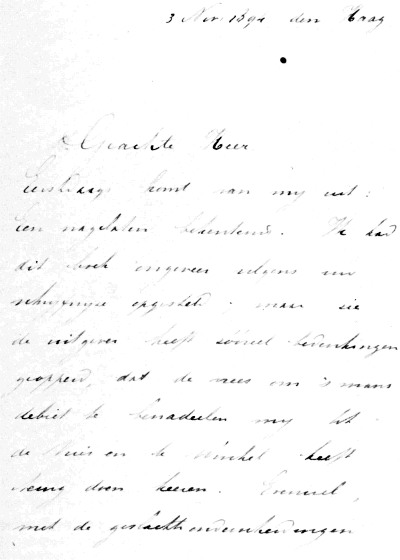 3 Nov 189 den Haag
Geachte Heer
Eerstdaags komt van my uit:
Een nagelaten bekentenis. Ik had
dit boek ongeveer volgens uw
schryfwyze opgesteld; maar zie
de uitgever heeft zóóveel bedenkingen
geopperd, dat de vrees om 's mans
debiet te benadeelen my tot
de Vries en te Winkel heeft
terug doen keeren. Evenwel,
met de geslachtsonderscheidingen